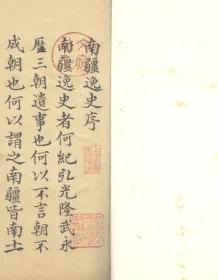 南疆逸史序
南疆逸史者何紀弘光隆武永
曆三朝遺事也何以不言朝不
成朝也何以謂之南疆皆南土